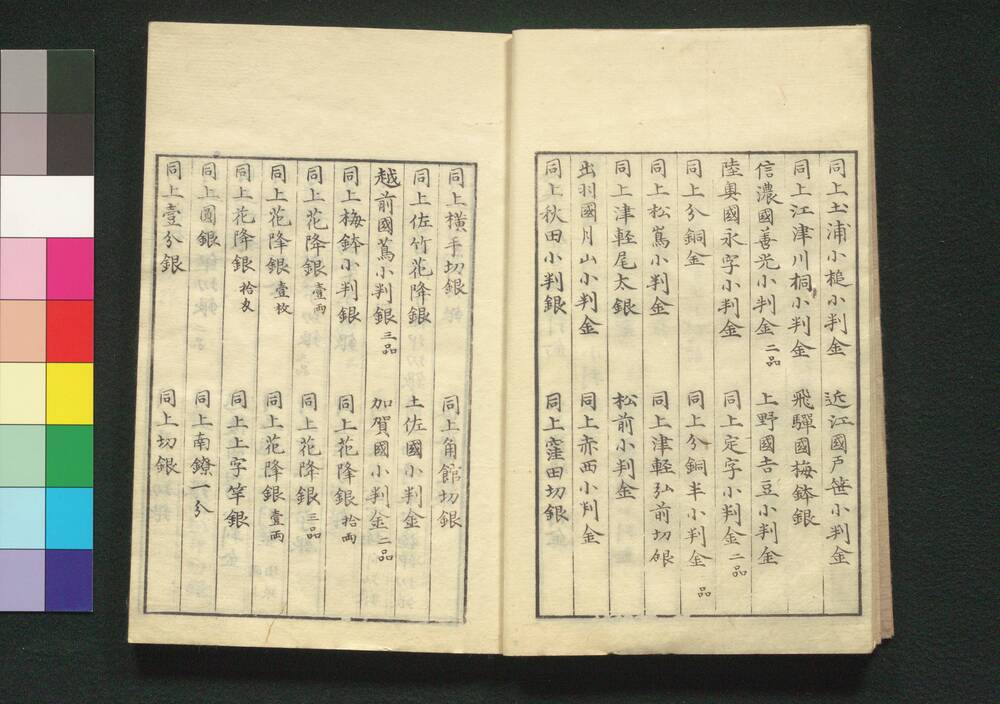 同上土浦小槌小判金　近江國戸笹小判金
同上江津川桐小判金　飛驒國梅鉢銀
信濃國善光小判金二品　上野國吉豆小判金
陸奥國永字小判金　同上定字小判金二品
同上分銅金　同上分銅半小判金品
同上松嶌小判金　同上津軽弘前切銀
同上津軽尾太銀　松前小判金
出羽國月山小判金　同上赤西小判金
同上秋田小判銀　同上窪田切銀
同上横手切銀　同上角館切銀
同上佐竹花降銀　土佐國小判金
越前國蔦小判銀三品　加賀國小判金二品
同上梅鉢小判銀　同上花降銀拾両
同上花降銀壹両　同上花降銀三品
同上花降銀壹枚　同上花降銀壹両
同上花降銀拾匁　同上上字竿銀
同上圓銀　同上南鐐一分
同上壹分銀　同上切銀